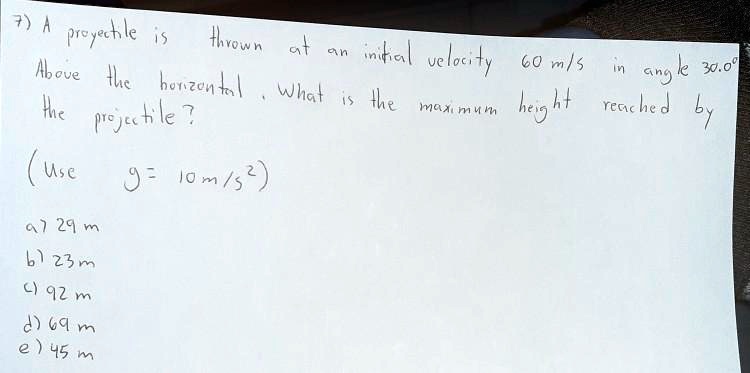 7) A proyectile is thrown at an initial velocity 60 m/s in angle 30.0°
Above the horizontal. What is the maximum height reached by
the projectile?
(Use g= 10 m/s²)
a) 29 m
b) 23 m
c) 92 m
d) 69 m
e) 45 m